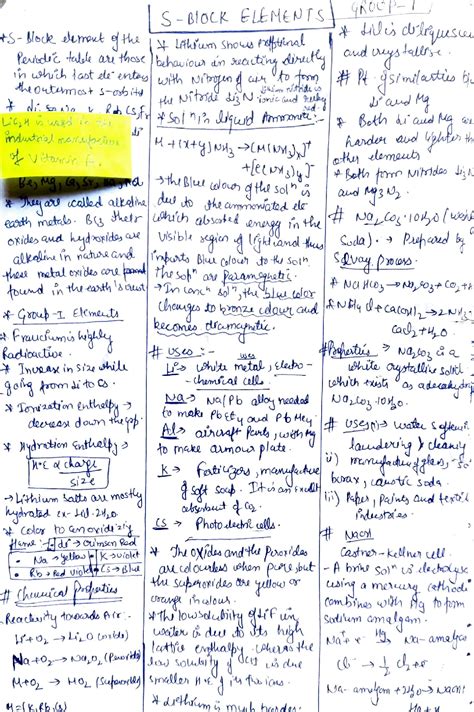 S-BLOCK ELEMENTS
GROUP-I
* S-Block element of the
Periodic table are those
in which last de⁻ enters
the outermost s-orbital
LiC₂H is used in the
industrial manufacture
of Vitamin A.
Be, Mg, Ca, Sr, Ba, Ra
* They are called alkaline
earth metals. BCz their
oxides and hydroxides are
alkaline in nature and
these metal oxides are found
found in the earth's crust
* Group-I Elements
* Francium is highly
Radioactive.
* Increase in size while
going from Li to Cs.
* Ionization enthalpy →
decrease down the gp.
* Hydration Enthalpy →
H·E α charge
size
→ Lithium Salts are mostly
hydrated ex- LiCl·2H₂O
* Color to an oxidizing
flame - Li → Crimson Red
• Na → Yellow • K → Violet
• Rb → Red Violet • Cs → Blue
# Chemical Properties
- Reactivity towards Air:-
Li + O₂ → Li₂O (oxides)
Na + O₂ → Na₂O₂ (Peroxides)
M + O₂ → MO₂ (Superoxides)
M = (K, Rb, Cs)
* Lithium shows
behaviour in reacting directly
with Nitrogen of air to form
the Nitride Li₃N
ionic and
* Solⁿ in liquid Ammonia:-
M + (x+y)NH₃ → [M(NH₃)ₓ]⁺
+ [e(NH₃)y]⁻
→ The Blue Colour of the solⁿ is
due to the ammoniated e⁻
which absorbed energy in the
visible region of light and thus
imparts Blue colour to the solⁿ
the solⁿ are Paramagnetic.
→ In concⁿ solⁿ, the blue color
changes to bronze colour and
becomes diamagnetic.
# Uses :-
Li → White metal, electro-
chemical cells.
Na → Na/Pb alloy needed
to make PbEt₄ and PbMe₄
Al → aircraft Parts, with Mg
to make armour plate.
K → Fertilizers, manufacture
of soft soap. It is an excellent
absorbent of CO₂
Cs → Photoelectric cells.
* The oxides and the peroxides
are colourless when pure, but
the superoxides are yellow or
orange in colour.
* The low solubility of LiF in
water is due to its high
lattice enthalpy whereas the
low solubility of CsI is due
smaller H.E of its ions.
* Lithium is much harder
* LiCl is deliquescent
and crystallise
# Pt. of similarities b/w
Li and Mg
* Both Li and Mg are
harder and lighter than
other elements
* Both form Nitrides Li₃N
and Mg₃N₂
# Na₂CO₃·10H₂O (Washing
Soda) · → Prepared by
Solvay Process.
* NaHCO₃ → Na₂CO₃ + CO₂ + H₂O
* NH₄Cl + Ca(OH)₂ → 2NH₃
CaCl₂ + H₂O
# Properties → Na₂CO₃ is a
white crystalline solid
which exists as decahydrate
Na₂CO₃·10H₂O.
# Uses i) → Water softening
laundering & cleaning
ii) manufacture of glass,
borax, caustic soda.
iii) Paper, Paints and textile
industries.
# NaOH
Castner-Kellner cell.
- A brine solⁿ is electrolysed
using a mercury cathode
combines with Hg to form
sodium amalgam.
Na⁺ + e⁻ Hg→ Na-amalgam
Cl⁻ → ½ Cl₂ + e⁻
Na-amalgam + 2H₂O → NaOH